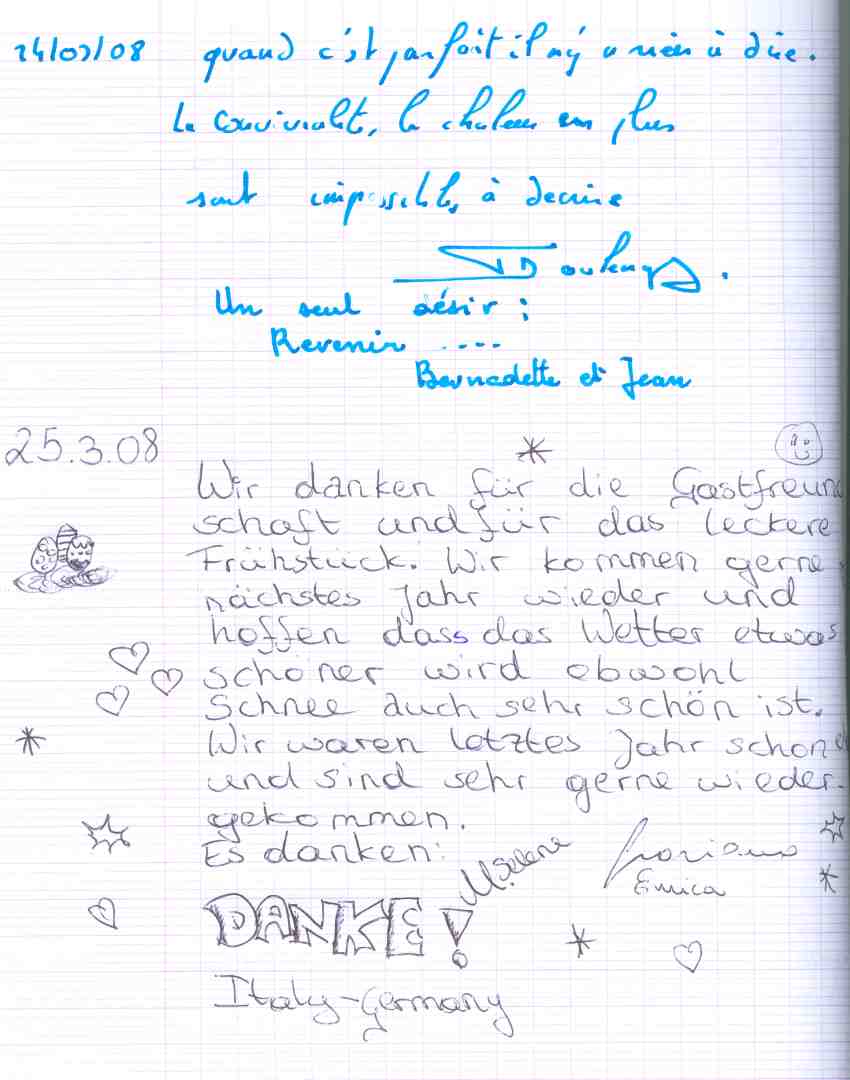 24/03/08 quand c'est parfait il n'y a rien à dire.
La convivialité, la chaleur en plus
sont impossibles à décrire
Un seul désir :
Revenir ....
Bernadette et Jean
25.3.08
Wir danken für die Gastfreun
schaft und für das leckere
Frühstück. Wir kommen gerne
nächstes Jahr wieder und
hoffen dass das Wetter etwas
schöner wird obwohl
Schnee auch sehr schön ist.
Wir waren letztes Jahr schon
und sind sehr gerne wieder
gekommen.
Es danken:
Enrica
DANKE!
Italy-Germany